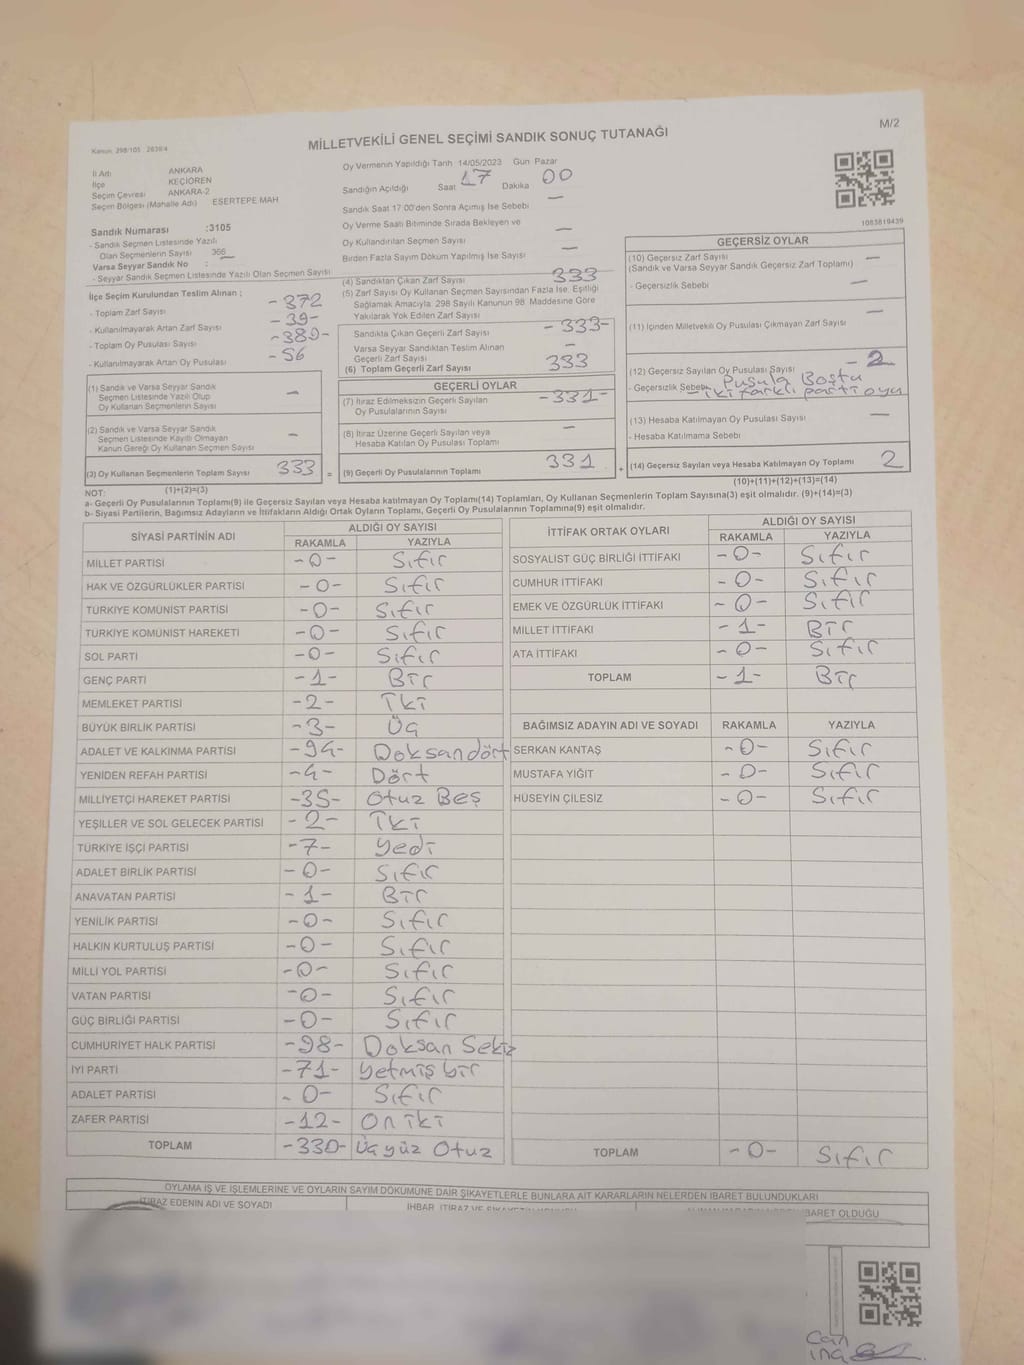 M/2
MİLLETVEKİLİ GENEL SEÇİMİ SANDIK SONUÇ TUTANAĞI
Kanun: 298/105 2839/4
İl Adı ANKARA
İlçe KEÇİÖREN
Seçim Çevresi ANKARA-2
Seçim Bölgesi (Mahalle Adı) ESERTEPE MAH
Oy Vermenin Yapıldığı Tarih 14/05/2023 Gün Pazar
Sandığın Açıldığı Saat 17 Dakika 00
Sandık Saat 17:00'den Sonra Açılmış İse Sebebi —
Oy Verme Saati Bitiminde Sırada Bekleyen ve
Oy Kullandırılan Seçmen Sayısı —
Birden Fazla Sayım Döküm Yapılmış İse Sayısı —
1083819439
Sandık Numarası :3105
- Sandık Seçmen Listesinde Yazılı
Olan Seçmenlerin Sayısı 366
Varsa Seyyar Sandık No :
- Seyyar Sandık Seçmen Listesinde Yazılı Olan Seçmen Sayısı
İlçe Seçim Kurulundan Teslim Alınan ;
- Toplam Zarf Sayısı -372
- Kullanılmayarak Artan Zarf Sayısı -39-
- Toplam Oy Pusulası -389-
- Kullanılmayarak Artan Oy Pusulası -56
(1) Sandık ve Varsa Seyyar Sandık
Seçmen Listesinde Yazılı Olup
Oy Kullanan Seçmenlerin Sayısı —
(2) Sandık ve Varsa Seyyar Sandık
Seçmen Listesinde Kayıtlı Olmayan
Kanun Gereği Oy Kullanan Seçmen Sayısı —
(3) Oy Kullanan Seçmenlerin Toplam Sayısı 333 =
(1)+(2)=(3)
(4) Sandıktan Çıkan Zarf Sayısı 333
(5) Zarf Sayısı Oy Kullanan Seçmen Sayısından Fazla İse, Eşitliği
Sağlamak Amacıyla; 298 Sayılı Kanunun 98. Maddesine Göre
Yakılarak Yok Edilen Zarf Sayısı
Sandıkta Çıkan Geçerli Zarf Sayısı -333-
Varsa Seyyar Sandıktan Teslim Alınan
Geçerli Zarf Sayısı —
(6) Toplam Geçerli Zarf Sayısı 333
GEÇERLİ OYLAR
(7) İtiraz Edilmeksizin Geçerli Sayılan
Oy Pusulalarının Sayısı -331-
(8) İtiraz Üzerine Geçerli Sayılan veya
Hesaba Katılan Oy Pusulası Toplamı —
(9) Geçerli Oy Pusulalarının Toplamı 331 +
GEÇERSİZ OYLAR
(10) Geçersiz Zarf Sayısı —
(Sandık ve Varsa Seyyar Sandık Geçersiz Zarf Toplamı)
- Geçersizlik Sebebi —
(11) İçinden Milletvekili Oy Pusulası Çıkmayan Zarf Sayısı —
(12) Geçersiz Sayılan Oy Pusulası Sayısı -2
- Geçersizlik Sebebi Pusula Boştu
- iki farklı parti oyu
(13) Hesaba Katılmayan Oy Pusulası Sayısı —
- Hesaba Katılmama Sebebi
(14) Geçersiz Sayılan veya Hesaba Katılmayan Oy Toplamı 2
(10)+(11)+(12)+(13)=(14)
NOT:
a- Geçerli Oy Pusulalarının Toplamı(9) ile Geçersiz Sayılan veya Hesaba katılmayan Oy Toplamı(14) Toplamları, Oy Kullanan Seçmenlerin Toplam Sayısına(3) eşit olmalıdır. (9)+(14)=(3)
b- Siyasi Partilerin, Bağımsız Adayların ve İttifakların Aldığı Ortak Oyların Toplamı, Geçerli Oy Pusulalarının Toplamına(9) eşit olmalıdır.
SİYASİ PARTİNİN ADI ALDIĞI OY SAYISI
RAKAMLA YAZIYLA
MİLLET PARTİSİ -0- Sıfır
HAK VE ÖZGÜRLÜKLER PARTİSİ -0- Sıfır
TÜRKİYE KOMÜNİST PARTİSİ -0- Sıfır
TÜRKİYE KOMÜNİST HAREKETİ -0- Sıfır
SOL PARTİ -0- Sıfır
GENÇ PARTİ -1- Bir
MEMLEKET PARTİSİ -2- İki
BÜYÜK BİRLİK PARTİSİ -3- Üç
ADALET VE KALKINMA PARTİSİ -94- Doksandört
YENİDEN REFAH PARTİSİ -4- Dört
MİLLİYETÇİ HAREKET PARTİSİ -35- Otuz Beş
YEŞİLLER VE SOL GELECEK PARTİSİ -2- İki
TÜRKİYE İŞÇİ PARTİSİ -7- Yedi
ADALET BİRLİK PARTİSİ -0- Sıfır
ANAVATAN PARTİSİ -1- Bir
YENİLİK PARTİSİ -0- Sıfır
HALKIN KURTULUŞ PARTİSİ -0- Sıfır
MİLLİ YOL PARTİSİ -0- Sıfır
VATAN PARTİSİ -0- Sıfır
GÜÇ BİRLİĞİ PARTİSİ -0- Sıfır
CUMHURİYET HALK PARTİSİ -98- Doksan Sekiz
İYİ PARTİ -71- Yetmiş bir
ADALET PARTİSİ -0- Sıfır
ZAFER PARTİSİ -12- On iki
TOPLAM -330- Üçyüz Otuz
İTTİFAK ORTAK OYLARI ALDIĞI OY SAYISI
RAKAMLA YAZIYLA
SOSYALİST GÜÇ BİRLİĞİ İTTİFAKI -0- Sıfır
CUMHUR İTTİFAKI -0- Sıfır
EMEK VE ÖZGÜRLÜK İTTİFAKI -0- Sıfır
MİLLET İTTİFAKI -1- Bir
ATA İTTİFAKI -0- Sıfır
TOPLAM -1- Bir
BAĞIMSIZ ADAYIN ADI VE SOYADI RAKAMLA YAZIYLA
SERKAN KANTAŞ -0- Sıfır
MUSTAFA YİĞİT -0- Sıfır
HÜSEYİN ÇİLESİZ -0- Sıfır
TOPLAM -0- Sıfır
OYLAMA İŞ VE İŞLEMLERİNE VE OYLARIN SAYIM DÖKÜMÜNE DAİR ŞİKAYETLERLE BUNLARA AİT KARARLARIN NELERDEN İBARET BULUNDUKLARI
İTİRAZ EDENİN ADI VE SOYADI
İHBAR, İTİRAZ VE
BARET OLDUĞU
Can